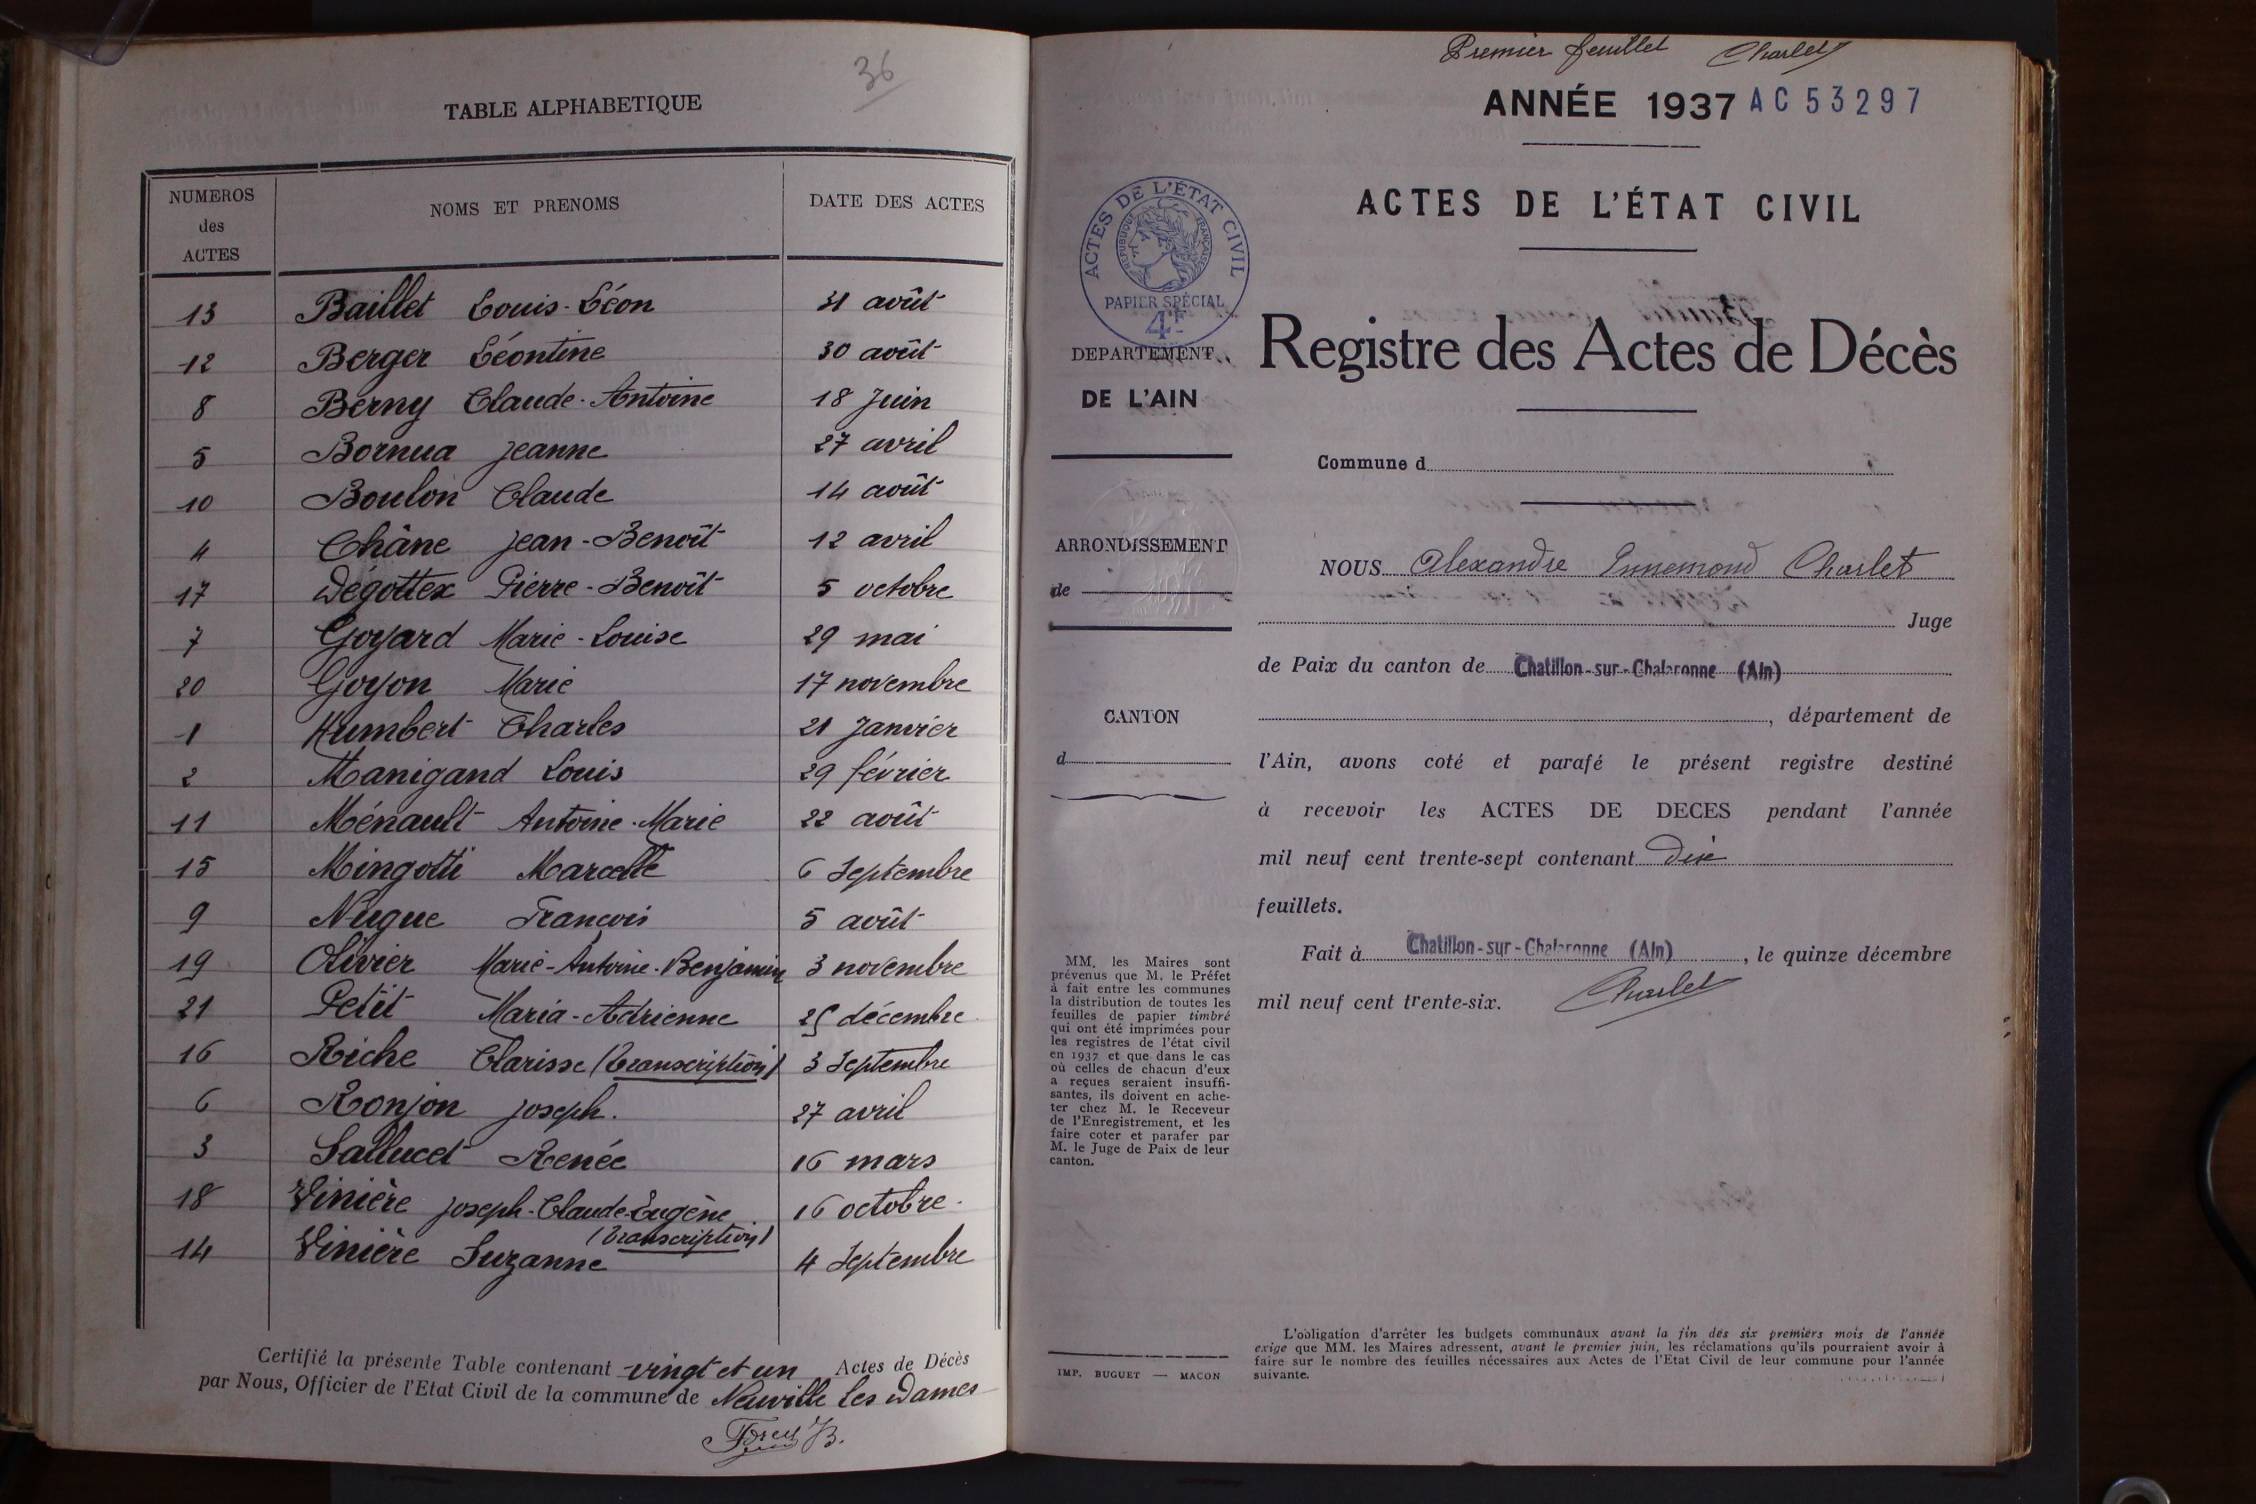 36
TABLE ALPHABETIQUE
NUMEROS des ACTES | NOMS ET PRENOMS | DATE DES ACTES
13 Baillet Louis-Léon 31 août
12 Berger Léontine 30 août
8 Berny Claude-Antoine 18 Juin
5 Bornua Jeanne 27 avril
10 Boulon Claude 14 août
4 Châne Jean-Benoît 12 avril
17 Dégottex Pierre-Benoît 5 octobre
7 Goyard Marie-Louise 29 mai
20 Goyon Marie 17 novembre
1 Humbert Charles 21 Janvier
2 Manigand Louis 29 février
11 Ménault Antoine-Marie 22 août
15 Mingotti Marcelle 6 Septembre
9 Nugue François 5 août
19 Olivier Marie-Antoine-Benjamin 3 novembre
21 Petit Maria-Adrienne 25 décembre
16 Riche Clarisse (Transcription) 3 Septembre
6 Ronjon Joseph. 27 avril
3 Sallucet Renée 16 mars
18 Vinière Joseph-Claude-Eugène 16 octobre
(Transcription)
14 Vinière Suzanne 4 Septembre
Certifié la présente Table contenant vingt et un Actes de Décès
par Nous, Officier de l'Etat Civil de la commune de Neuville Les Dames
Premier feuillet Charlet
ANNÉE 1937 AC 53297
ACTES DE L'ÉTAT CIVIL
ACTES DE L'ÉTAT CIVIL
RÉPUBLIQUE FRANÇAISE
PAPIER SPÉCIAL
4F
Registre des Actes de Décès
DEPARTEMENT
DE L'AIN
Commune d
ARRONDISSEMENT
de
CANTON
d
NOUS Alexandre Ennemond Charlet
Juge
de Paix du canton de Chatillon-sur-Chalaronne (Ain)
, département de
l'Ain, avons coté et parafé le présent registre destiné
à recevoir les ACTES DE DECES pendant l'année
mil neuf cent trente-sept contenant Dix
feuillets.
Fait à Chatillon-sur-Chalaronne (Ain), le quinze décembre
mil neuf cent trente-six. Charlet
MM. les Maires sont
prévenus que M. le Préfet
à fait entre les communes
la distribution de toutes les
feuilles de papier timbré
qui ont été imprimées pour
les registres de l'état civil
en 1937 et que dans le cas
où celles de chacun d'eux
a reçues seraient insuffi-
santes, ils doivent en ache-
ter chez M. le Receveur
de l'Enregistrement, et les
faire coter et parafer par
M. le Juge de Paix de leur
canton.
IMP. BUGUET — MACON
L'obligation d'arrêter les budgets communaux avant la fin des six premiers mois de l'année
exige que MM. les Maires adressent, avant le premier juin, les réclamations qu'ils pourraient avoir à
faire sur le nombre des feuilles nécessaires aux Actes de l'Etat Civil de leur commune pour l'année
suivante.